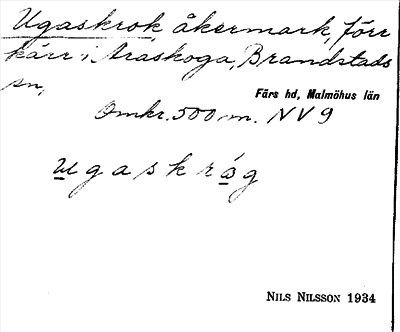 Ugaskrok, åkermark, förr
kärr i Araskoga, Brandstads
sn,
Färs hd, Malmöhus län
Omkr. 500 m. NV 9
u g a s k r å g
NILS NILSSON 1934